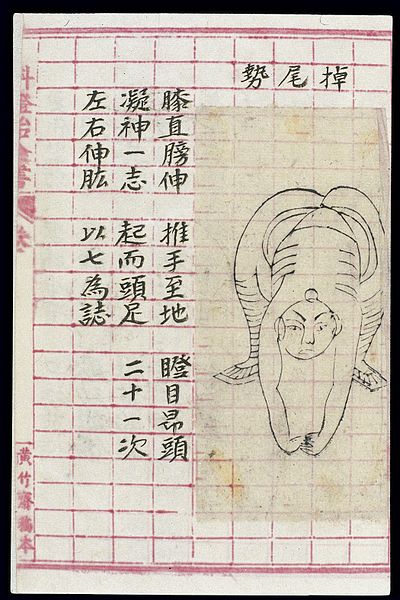 掉尾勢
膝直膀伸 推手至地 瞪目昂頭
凝神一志 起而頭足 二十一次
左右伸肱 以七為誌
黃竹齋稿本